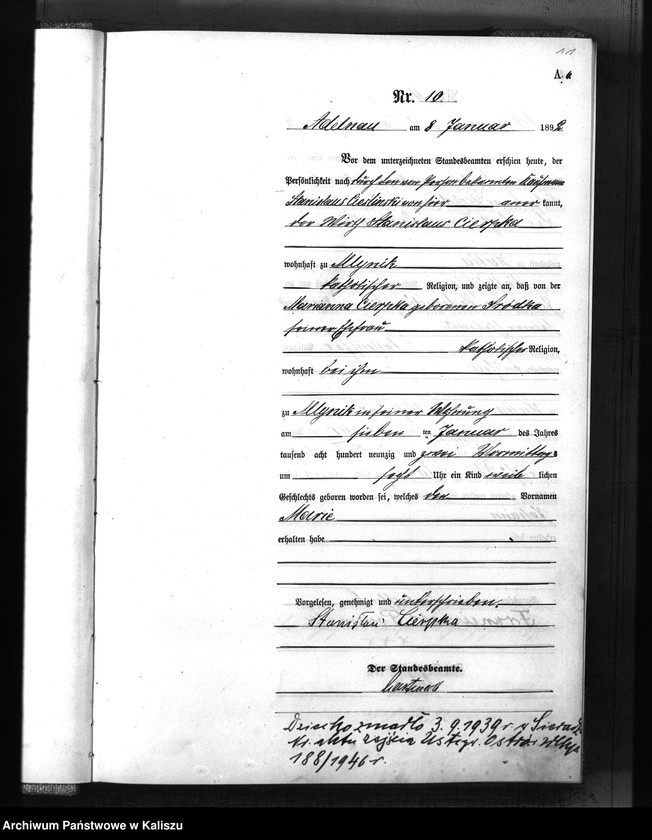 A.
Nr. 10
Adelnau am 8 Januar 1892
Vor dem unterzeichneten Standesbeamten erschien heute, der
Persönlichkeit nach durch den von Person bekannten Kaufmann
Stanislaus Cieslinski von hier aner kannt,
der Wirth Stanislaus Cierpka
wohnhaft zu Mlynik
katholischer Religion, und zeigte an, daß von der
Marianna Cierpka geborenen Srodka
seiner Ehefrau
katholischer Religion,
wohnhaft bei ihm
zu Mlynik in seiner Wohnung
am sieben ten Januar des Jahres
tausend acht hundert neunzig und zwei Vormittags
um Uhr ein Kind weib lichen
Geschlechts geboren worden sei, welches den Vornamen
Marie
erhalten habe
Vorgelesen, genehmigt und unterschrieben.
Stanislaus Cierpka
Der Standesbeamte.
Dziecko zmarło 3.9.1939 r. w
Nr. aktu zejścia
188/1946 r.
Archiwum Państwowe w Kaliszu